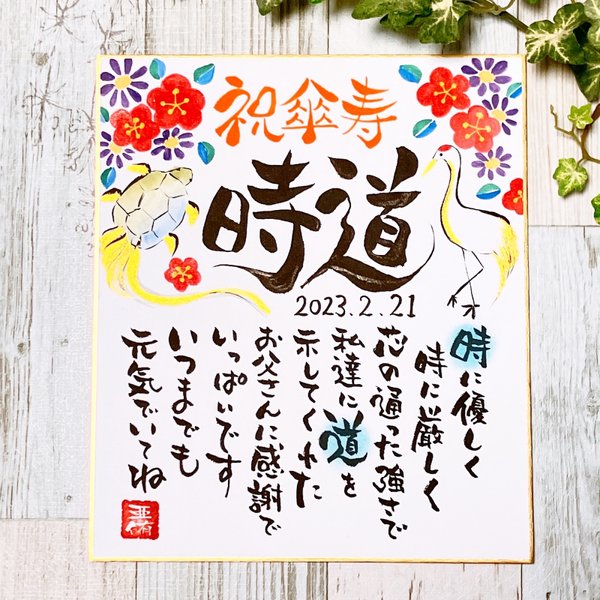 祝傘寿
時道
2023.2.21
時に優しく
時に厳しく
芯の通った強さで
私達に道を
示してくれた
お父さんに感謝で
いっぱいです
いつまでも
元気でいてね